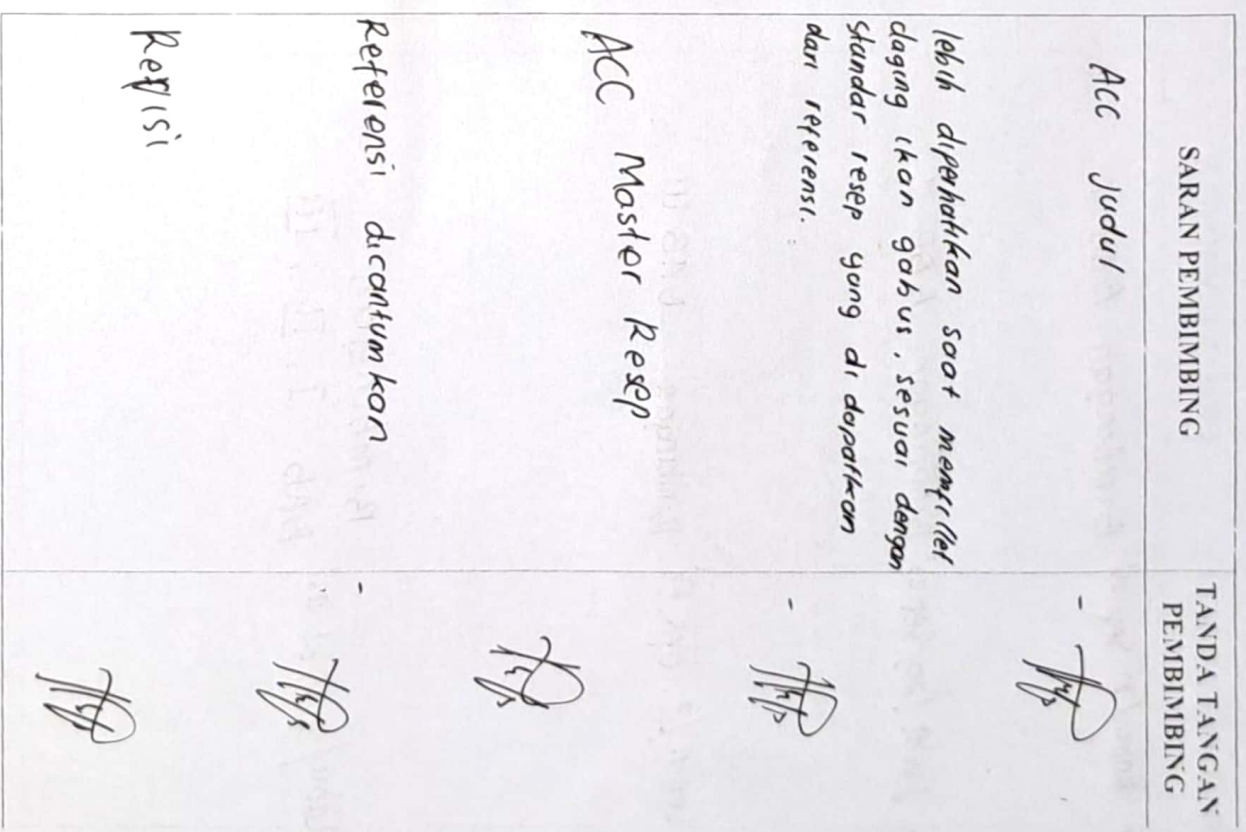 SARAN PEMBIMBING
TANDA TANGAN
PEMBIMBING
ACC Judul
lebih diperhatikan saat memfillet
daging ikan gabus. sesuai dengan
standar resep yang di dapatkan
dari referensi.
ACC Master Resep
Referensi dicantumkan
Revisi